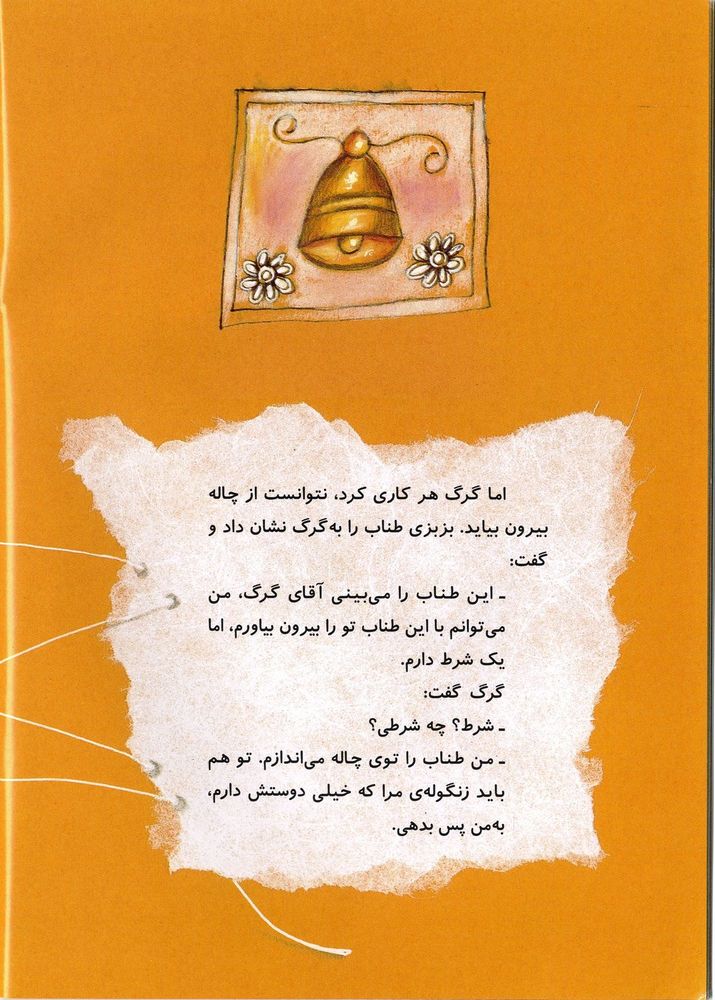 اما گرگ هر کاری کرد، نتوانست از چاله
بیرون بیاید. بزبزی طناب را به‌گرگ نشان داد و
گفت:
ـ این طناب را می‌بینی آقای گرگ، من
می‌توانم با این طناب تو را بیرون بیاورم، اما
یک شرط دارم.
گرگ گفت:
ـ شرط؟ چه شرطی؟
ـ من طناب را توی چاله می‌اندازم. تو هم
باید زنگوله‌ی مرا که خیلی دوستش دارم،
به‌من پس بدهی.